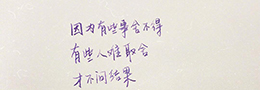 因为有些事舍不得
有些人难取舍
才不问结果